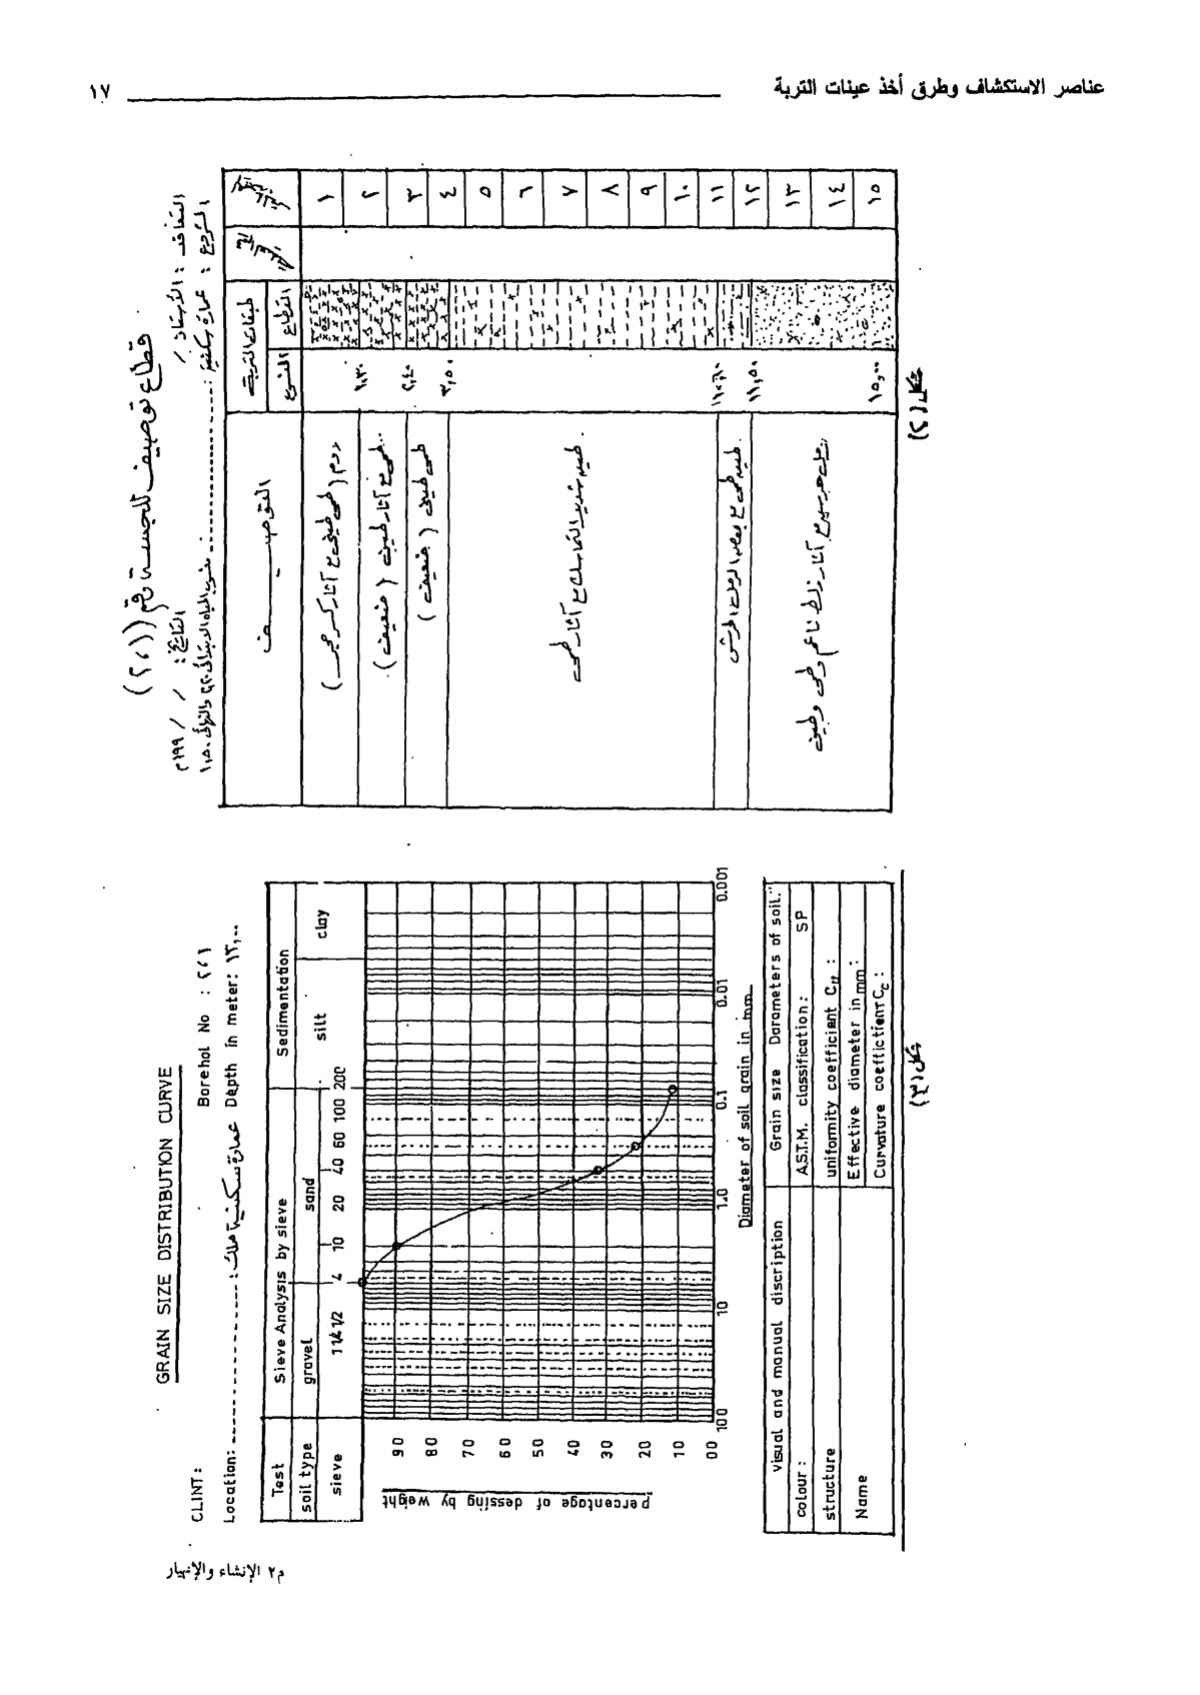 عناصر الاستكشاف وطرق أخذ عينات التربة
١٧
قطاع توصيف للجسة رقم (٢،١)
التعاقد : الأستاذ /
التاريخ : / / ١٩٩م
المشروع : عمارة سكنية
منسوب المياه الابتدائى ٢,٢٠ والنهائى ١,٥٠
طبقات التربة
القطاع
النوع
التوصيف
١
٢
٣
٤
٥
٦
٧
٨
٩
١٠
١١
١٢
١٣
١٤
١٥
١,٣٠
ردم (طمى طينى مع آثار كسر جير)
٢,٤٠
طمى مع آثار طين (ضعيف)
٣,٥٠
طمى طينى (ضعيف)
طين شديد التماسك مع آثار طمى
١٠,٦٠
طين طمى مع بعض الرمل الحرش
١١,٥٠
رمل حرسى مع آثار زلط ناعم وطمى وطين
١٥,٠٠
شكل (٢)
GRAIN SIZE DISTRIBUTION CURVE
CLINT :
Borehol No : ٢،١
Location: ---------------- : عمارة سكنية ملك Depth in meter: ١٣,٠٠
Test
Sieve Analysis by sieve
Sedimentation
soil type
gravel
sand
silt
clay
sieve
1 1/4 1/2 4 10 20 40 60 100 200
90
80
70
60
50
40
30
20
10
00
percentage of dessing by weight
100 10 1.0 0.1 0.01 0.001
Diameter of soil grain in mm
visual and manual discription
Grain size Darameters of soil."
colour :
A.S.T.M. classification : SP
structure
uniformity coefficient Cu :
Name
Effective diameter in mm :
Curvature coeffictient Cc :
شكل (٣)
م٢ الإنشاء والإنهيار